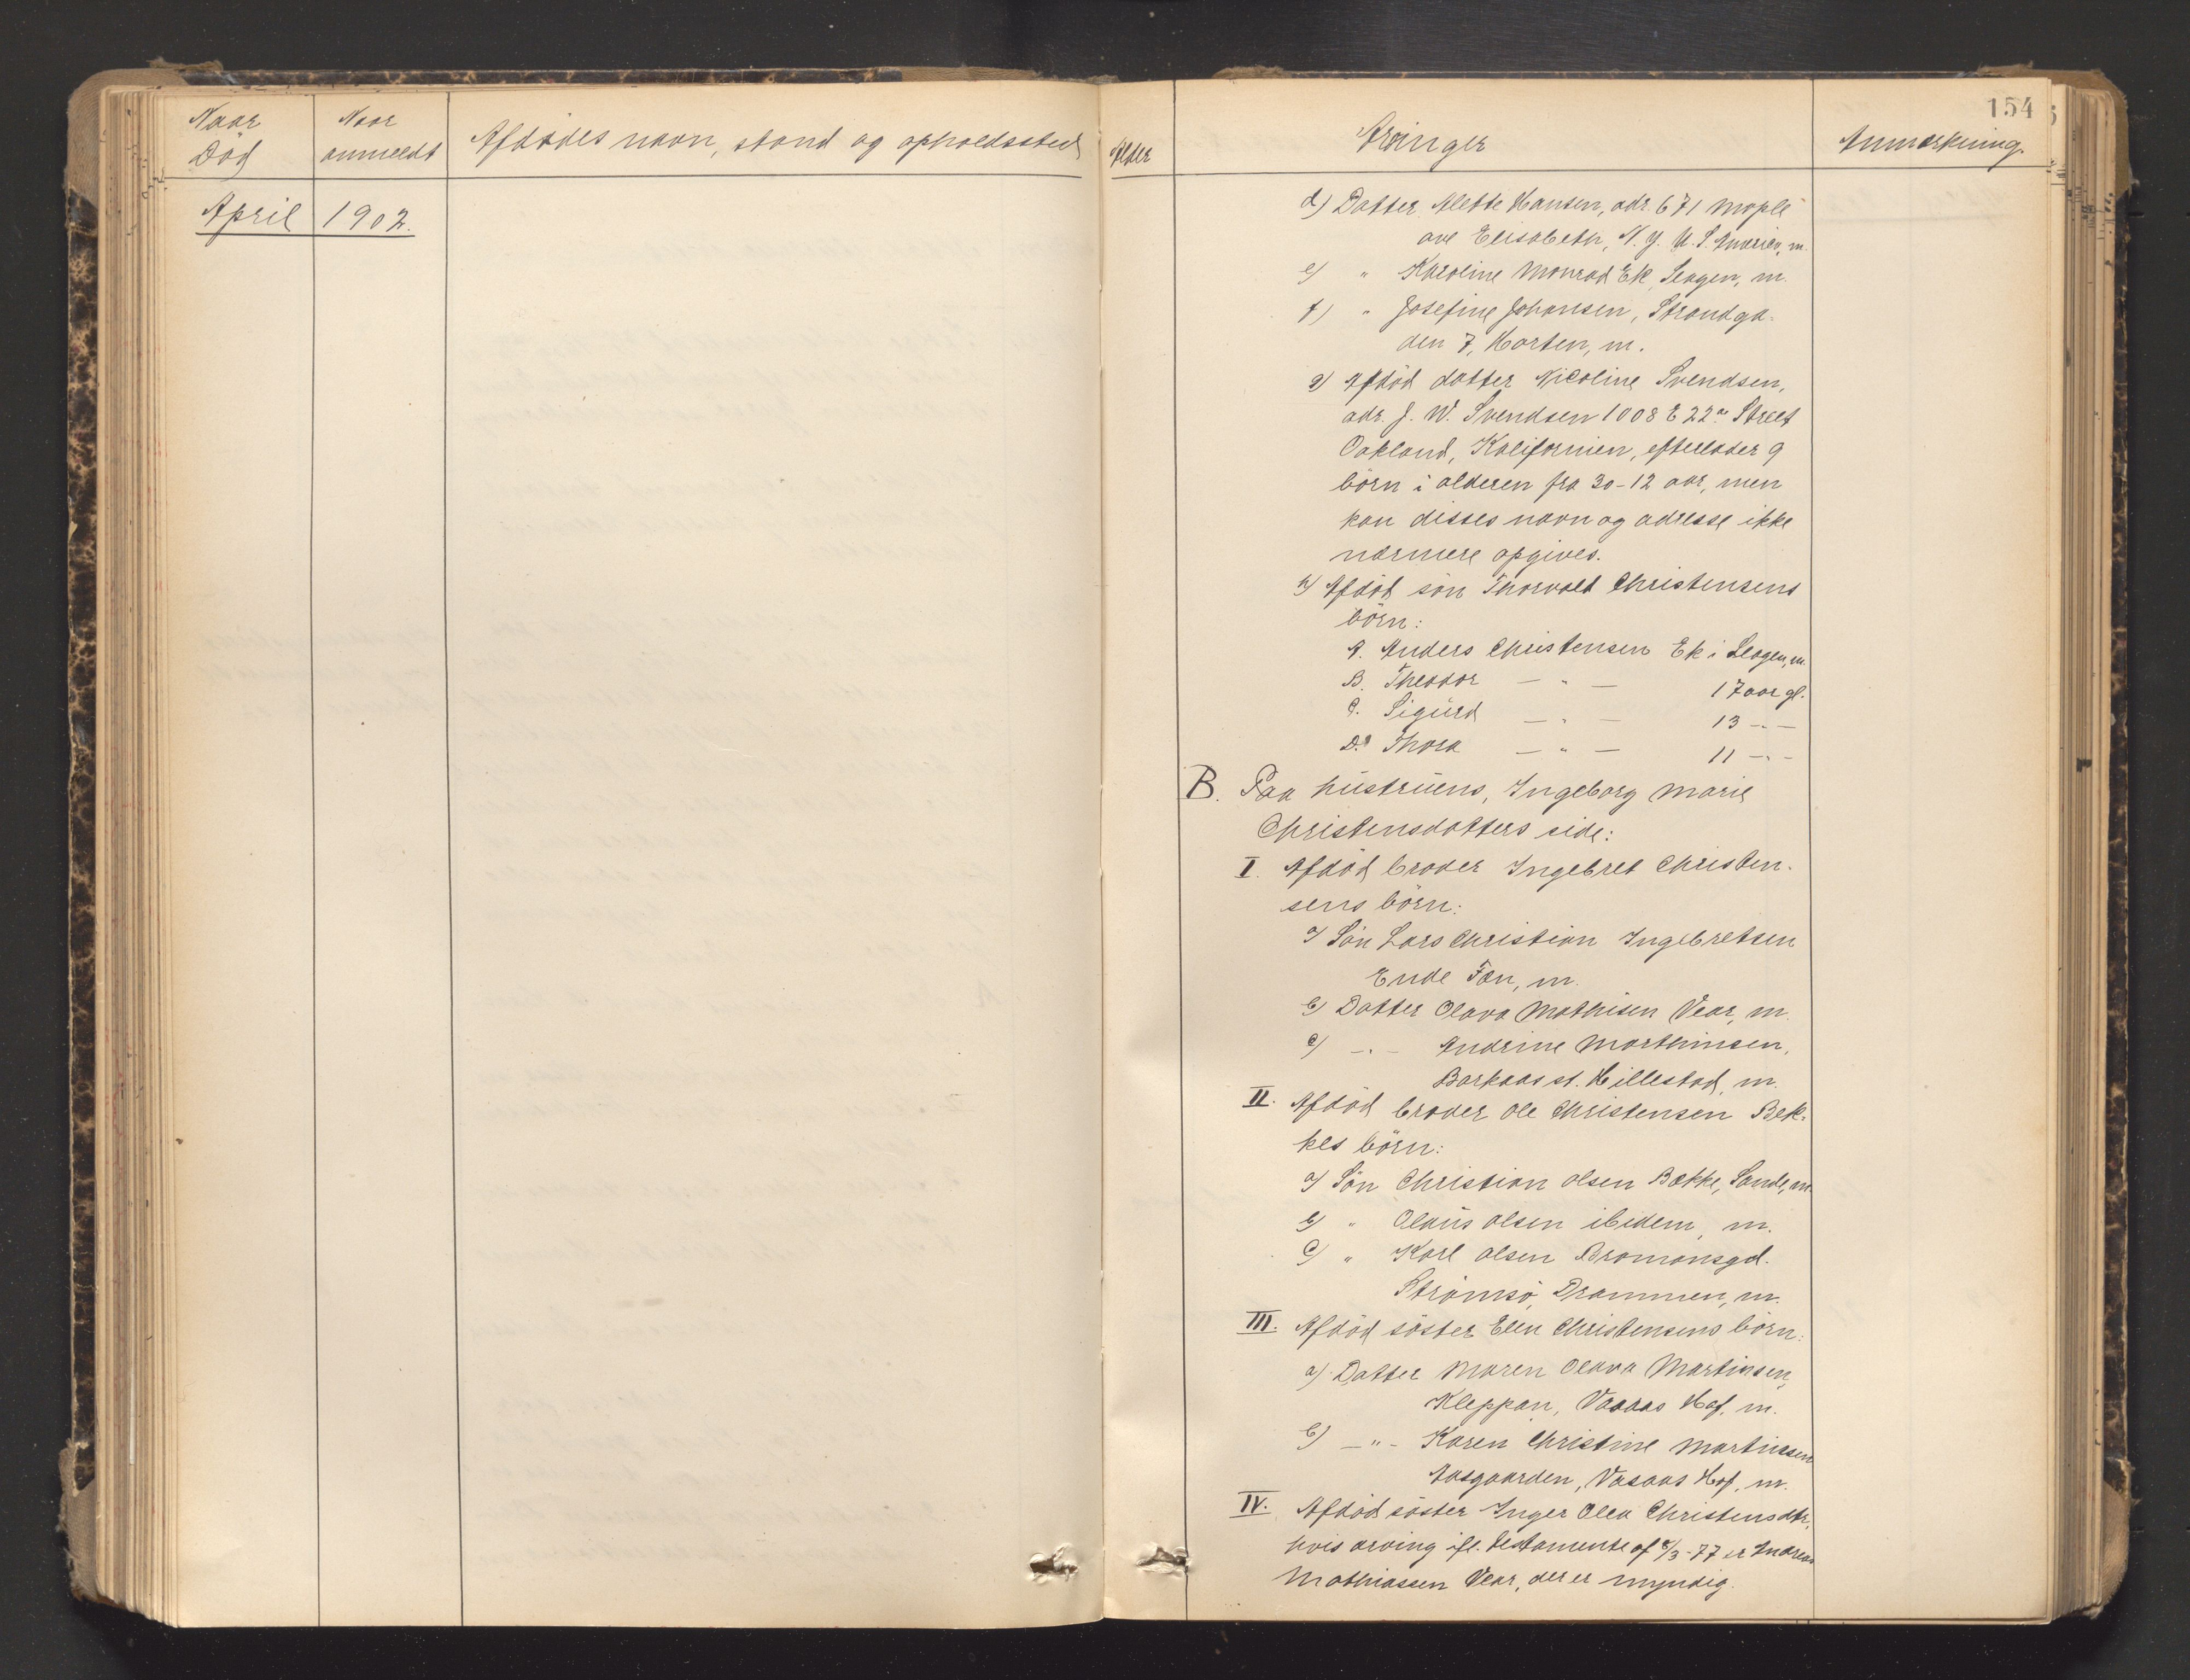 Naar
Död
Naar
anmeldt
Afdödes navn, stand og opholdssted
Alder
Arvinger
154
Anmerkning.
April 1902.
d) Datter Alette Hansen, adr. 671 Maple
ave Elisabeth, N. Y. U. S. America, m.
e) " Karoline Monrad Ek, Slagen, m.
f) " Josefine Johansen, Strandga-
den 7, Horten, m.
g) Afdöd datter Nicoline Svendsen,
adr. J. W. Svendsen 1008 E 22 Street
Oakland, Kalifornien, efterlader 9
börn i alderen fra 30-12 aar, men
kan disses navn og adresse ikke
nærmere opgives.
h) Afdöd sön Thorvald Christensens
börn:
A. Anders Christensen Ek i Slagen, m.
B. Theodor — " — 17 aar gl.
C. Sigurd — " — 13 - " -
D. Thora — " — 11 - " -
B. Paa hustruens, Ingeborg Marie
Christensdatters side:
I. Afdöd broder Ingebret Christen-
sens börn:
a) Sön Lars Christian Ingebretsen
Ende Fon, m.
b) Datter Olava Mathisen Vear, m.
c) - " - Andrine Marthinsen,
Barkaas st. Hillestad, m.
II. Afdöd broder Ole Christensen Bek-
kes börn:
a) Sön Christian Olsen Bække, Sande, m.
b) " Olaus Olsen ibidem, m.
c) " Karl Olsen Bromansgd.
Strömsö, Drammen, m.
III. Afdöd söster Elen Christensens börn:
a) Datter Maren Olava Martinsen,
Kleppan, Vasaas Hof, m.
b) - " - Karen Christine Martinsen
Aasgaarden, Vasaas Hof, m.
IV. Afdöd söster Inger Olea Christensdtr,
hvis arving ifl. testamente af 8/3-77 er Andreas
Mathiassen Vear, der er myndig.